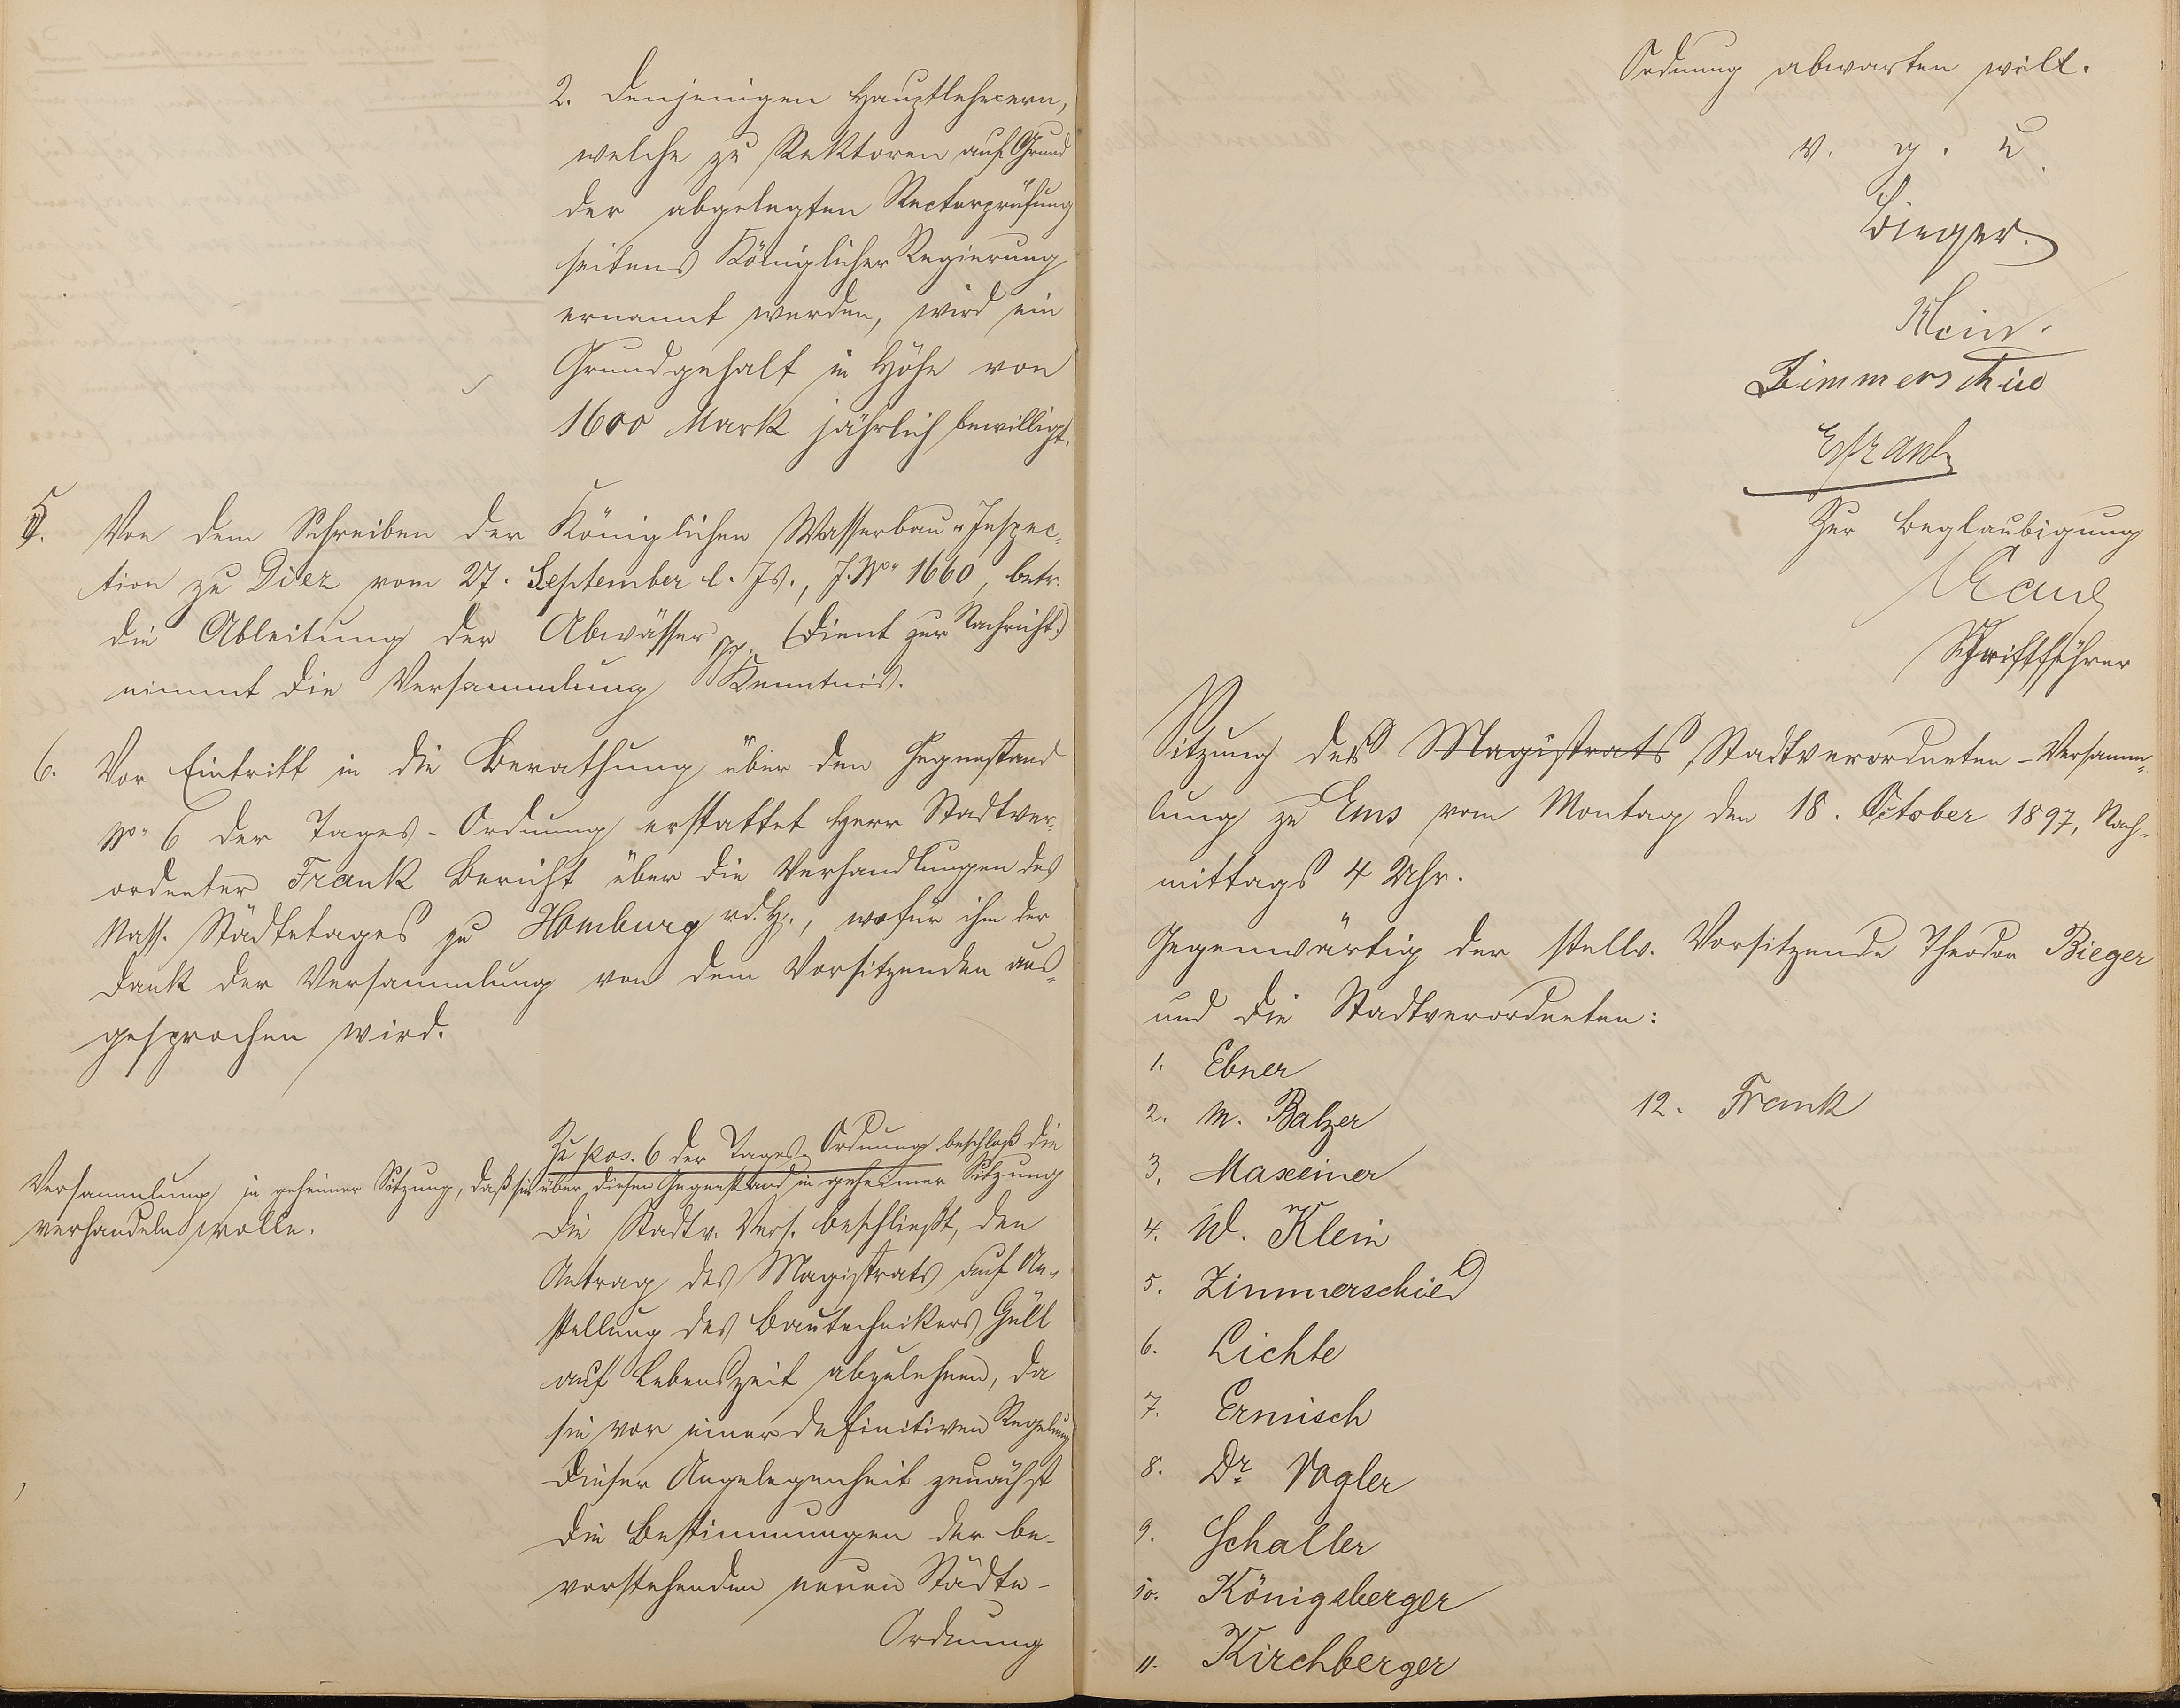 2. Denjenigen Hauptlehrern,
welche zu Rektoren auf Grund
der abgelegten Rectorprüfung
seitens Königlicher Regierung
ernannt werden, wird ein
Grundgehalt in Höhe von
1600 Mark jährlich bewilligt.
5. Von dem Schreiben der Königlichen Wasserbau-Inspec-
tion zu Diez vom 27. September l. Js., J. No. 1660, betr.
die Ableitung der Abwässer pp. (dient zur Nachricht.)
nimmt die Versammlung Kenntnis.
6. Vor Eintritt in die Berathung über den Gegenstand
No. 6 der Tages-Ordnung erstattet Herr Stadtver-
ordneter Frank Bericht über die Verhandlungen des
Nass. Städtetages zu Homburg v.d.H., wofür ihm der
Dank der Versammlung von dem Vorsitzenden aus-
gesprochen wird.
Zu pos. 6 der Tages-Ordnung beschloß die
Versammlung in geheimer Sitzung, daß sie über diesen Gegenstand in geheimer Sitzung
verhandeln wolle.
Die Stadtv. Vers. beschließt, den
Antrag des Magistrats auf An-
stellung des Bautechnikers Güll
auf Lebenszeit abzulehnen, da
sie vor einer definitiven Regelung
dieser Angelegenheit zunächst
die Bestimmungen der be-
vorstehenden neuen Städte-
Ordnung
Ordnung abwarten will.
v. g. u.
Bieger.
Klein.
Zimmerschied
Frank
Zur Beglaubigung
Schriftführer
Sitzung der Magistrats Stadtverordneten-Versamm-
lung zu Ems vom Montag den 18. October 1897, Nach-
mittags 4 Uhr.
Gegenwärtig der stellv. Vorsitzende Theodor Bieger
und die Stadtverordneten:
1. Ebner
2. M. Balzer
3. Maxeiner
4. W. Klein
5. Zimmerschied
6. Lichte
7. Ermisch
8. Dr. Vogler
9. Schaller
10. Königsberger
11. Kirchberger
12. Frank